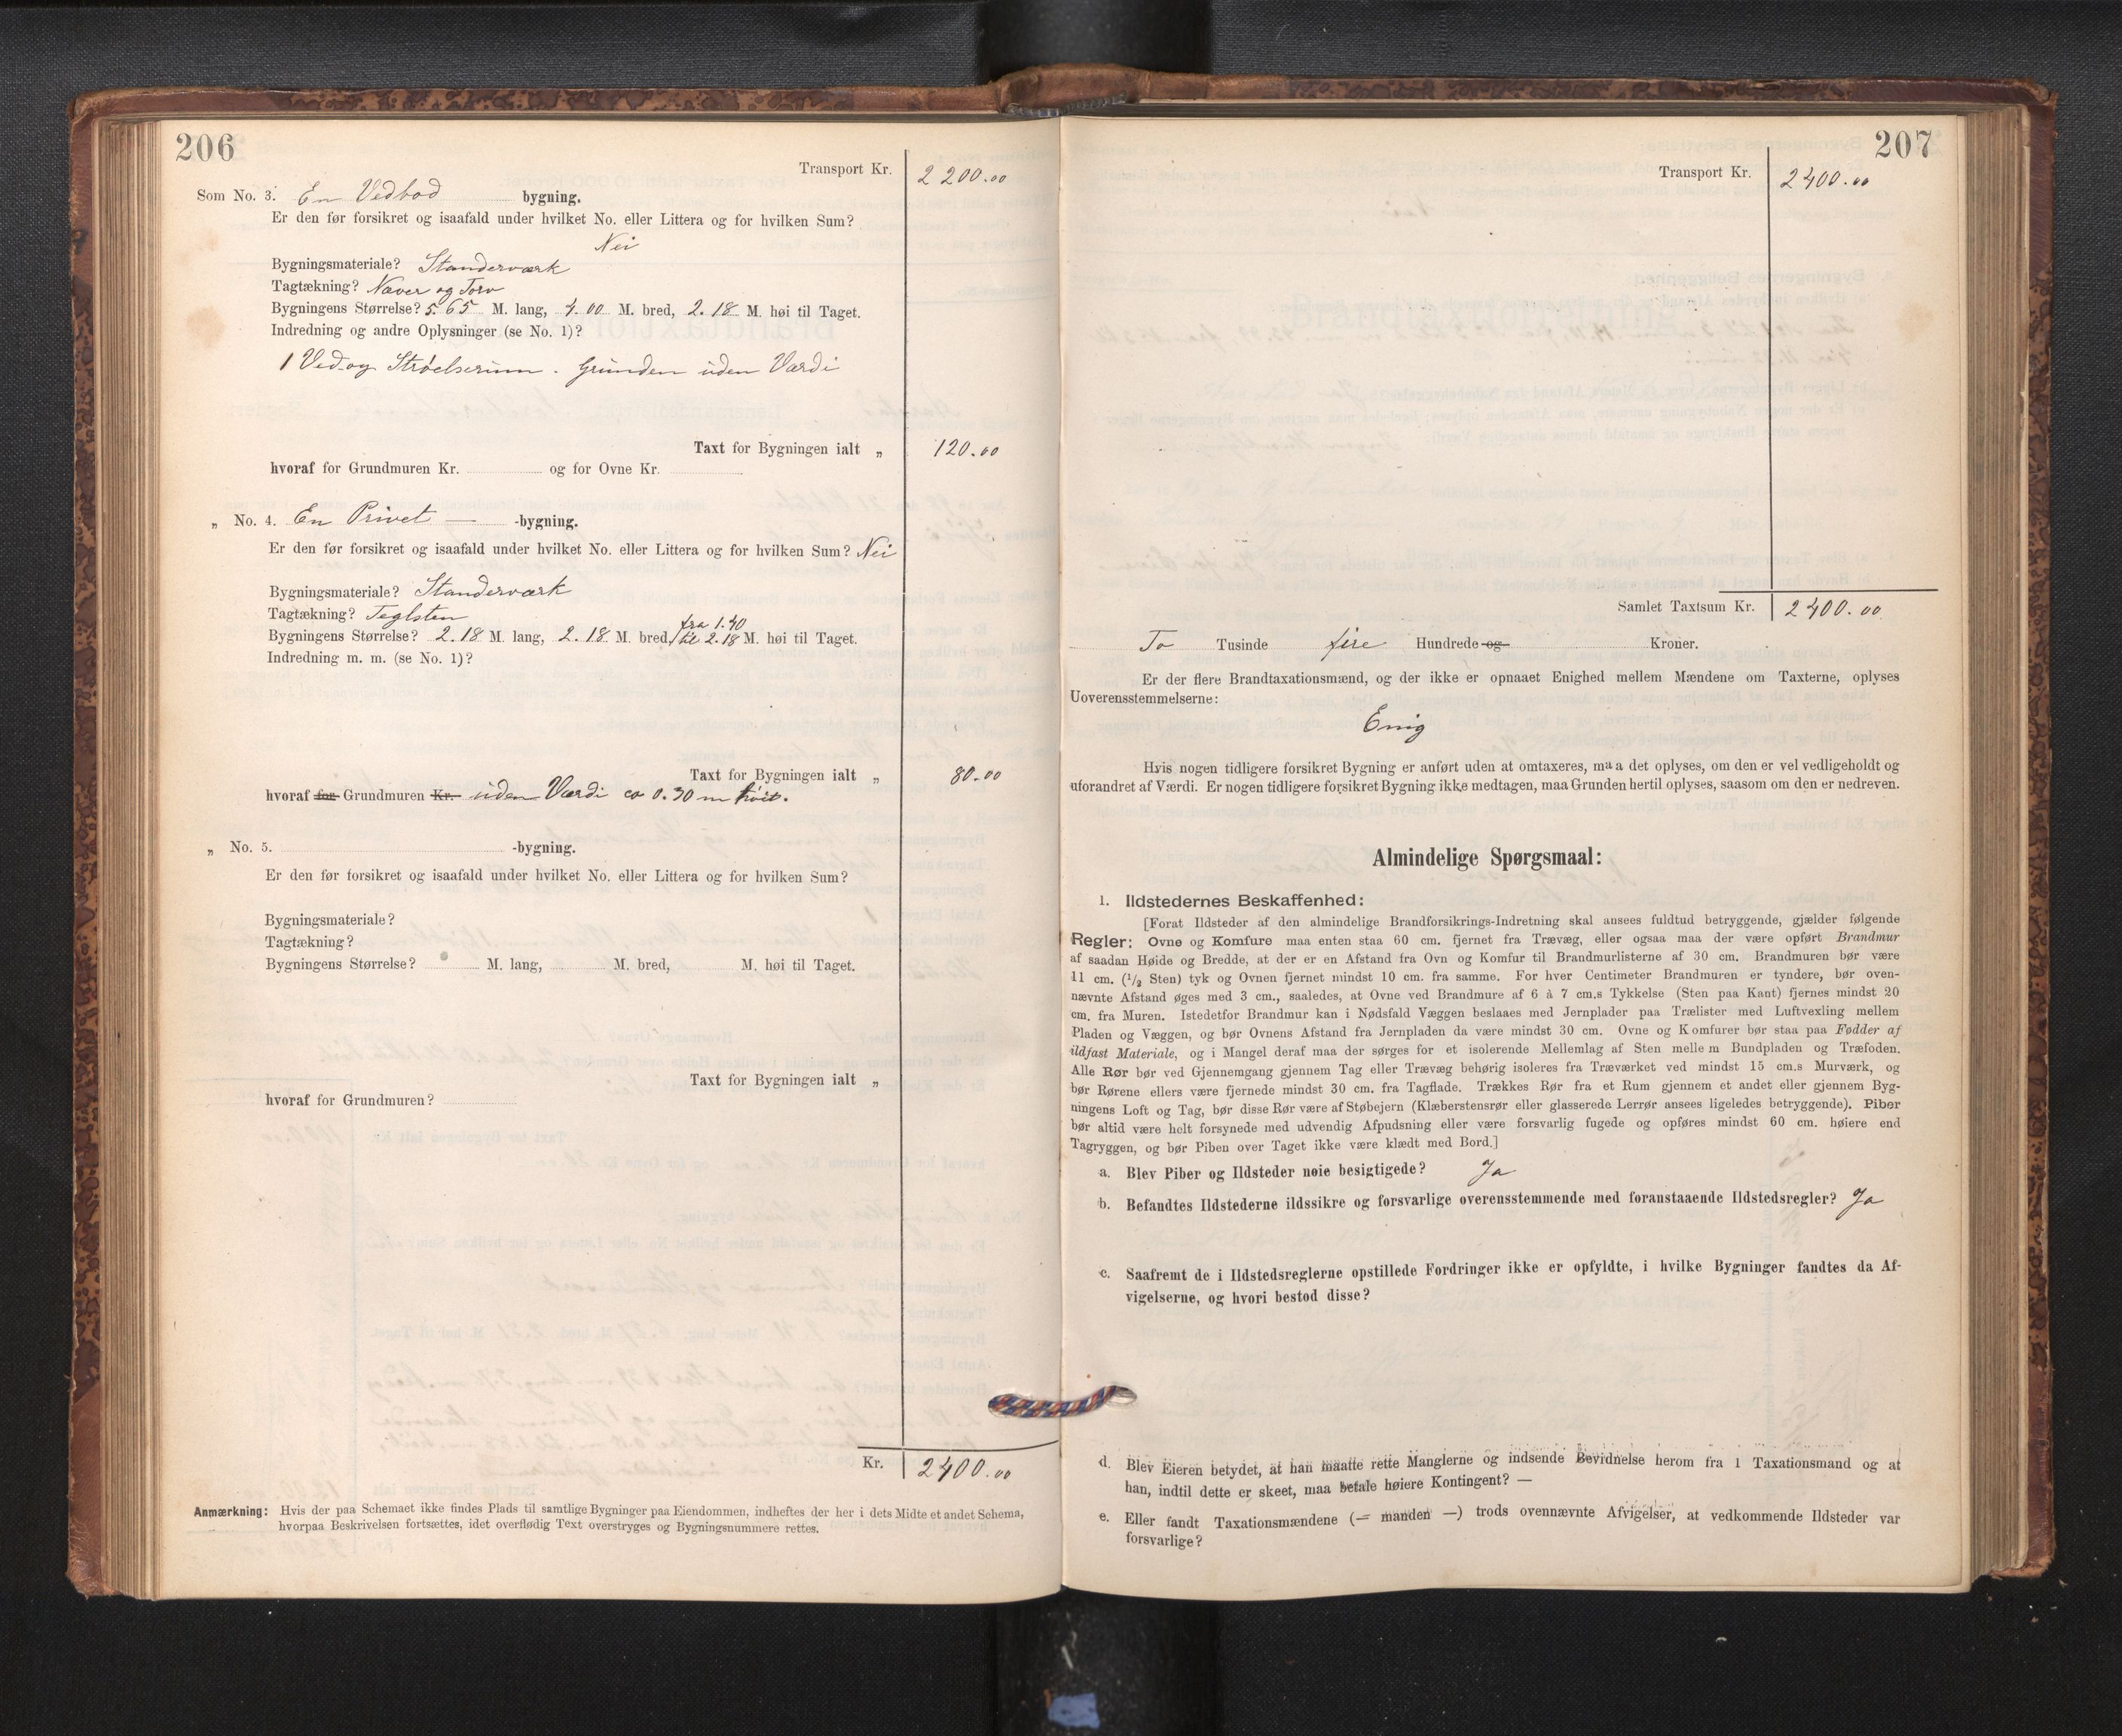 206
Transport Kr. 2 200.00
Som No. 3. En Vedbod bygning.
Er den før forsikret og isaafald under hvilket No. eller Littera og for hvilken Sum?
Nei
Bygningsmateriale? Standerværk
Tagtækning? Næver og Torv
Bygningens Størrelse? 5.65 M. lang, 4.00 M. bred, 2.18 M. høi til Taget.
Indredning og andre Oplysninger (se No. 1)?
1 Ved og Strøelserum. Grunden uden Værdi
Taxt for Bygningen ialt „ 120.00
hvoraf for Grundmuren Kr. og for Ovne Kr.
„ No. 4. En Privet — -bygning.
Er den før forsikret og isaafald under hvilket No. eller Littera og for hvilken Sum? Nei
Bygningsmateriale? Standerværk
Tagtækning? Teglsten
fra 1.40
Bygningens Størrelse? 2.18 M. lang, 2.18 M. bred, til 2.18 M. høi til Taget.
Indredning m. m. (se No. 1)?
Taxt for Bygningen ialt „ 80.00
hvoraf for Grundmuren Kr. uden Værdi ca 0.30 m høit.
„ No. 5. -bygning.
Er den før forsikret og isaafald under hvilket No. eller Littera og for hvilken Sum?
Bygningsmateriale?
Tagtækning?
Bygningens Størrelse? M. lang, M. bred, M. høi til Taget.
Taxt for Bygningen ialt „
hvoraf for Grundmuren?
Kr. 2400.00
Anmærkning: Hvis der paa Schemaet ikke findes Plads til samtlige Bygninger paa Eiendommen, indheftes der her i dets Midte et andet Schema,
hvorpaa Beskrivelsen fortsættes, idet overflødig Text overstryges og Bygningsnummere rettes.
207
Transport Kr. 2400.00
Samlet Taxtsum Kr. 2400.00
To Tusinde fire Hundrede og Kroner.
Er der flere Brandtaxationsmænd, og der ikke er opnaaet Enighed mellem Mændene om Taxterne, oplyses
Uoverensstemmelserne:
Enig
Hvis nogen tidligere forsikret Bygning er anført uden at omtaxeres, maa det oplyses, om den er vel vedligeholdt og
uforandret af Værdi. Er nogen tidligere forsikret Bygning ikke medtagen, maa Grunden hertil oplyses, saasom om den er nedreven.
Almindelige Spørgsmaal:
1. Ildstedernes Beskaffenhed:
[Forat Ildsteder af den almindelige Brandforsikrings-Indretning skal ansees fuldtud betryggende, gjælder følgende
Regler: Ovne og Komfure maa enten staa 60 cm. fjernet fra Trævæg, eller ogsaa maa der være opført Brandmur
af saadan Høide og Bredde, at der er en Afstand fra Ovn og Komfur til Brandmurlisterne af 30 cm. Brandmuren bør være
11 cm. (1/2 Sten) tyk og Ovnen fjernet mindst 10 cm. fra samme. For hver Centimeter Brandmuren er tyndere, bør oven-
nævnte Afstand øges med 3 cm., saaledes, at Ovne ved Brandmure af 6 à 7 cm.s Tykkelse (Sten paa Kant) fjernes mindst 20
cm. fra Muren. Istedetfor Brandmur kan i Nødsfald Væggen beslaaes med Jernplader paa Trælister med Luftvexling mellem
Pladen og Væggen, og bør Ovnens Afstand fra Jernpladen da være mindst 30 cm. Ovne og Komfurer bør staa paa Fødder af
ildfast Materiale, og i Mangel deraf maa der sørges for et isolerende Mellemlag af Sten mellem Bundpladen og Træfoden.
Alle Rør bør ved Gjennemgang gjennem Tag eller Trævæg behørig isoleres fra Træværket ved mindst 15 cm.s Murværk, og
bør Rørene ellers være fjernede mindst 30 cm. fra Tagflade. Trækkes Rør fra et Rum gjennem et andet eller gjennem Byg-
ningens Loft og Tag, bør disse Rør være af Støbejern (Klæberstensrør eller glasserede Lerrør ansees ligeledes betryggende). Piber
bør altid være helt forsynede med udvendig Afpudsning eller være forsvarlig fugede og opføres mindst 60 cm. høiere end
Tagryggen, og bør Piben over Taget ikke være klædt med Bord.]
a. Blev Piber og Ildsteder nøie besigtigede? Ja
b. Befandtes Ildstederne ildssikre og forsvarlige overensstemmende med foranstaaende Ildstedsregler? Ja
c. Saafremt de i Ildstedsreglerne opstillede Fordringer ikke er opfyldte, i hvilke Bygninger fandtes da Af-
vigelserne, og hvori bestod disse?
d. Blev Eieren betydet, at han maatte rette Manglerne og indsende Bevidnelse herom fra 1 Taxationsmand og at
han, indtil dette er skeet, maa betale høiere Kontingent? —
e. Eller fandt Taxationsmændene (— manden —) trods ovennævnte Afvigelser, at vedkommende Ildsteder var
forsvarlige?